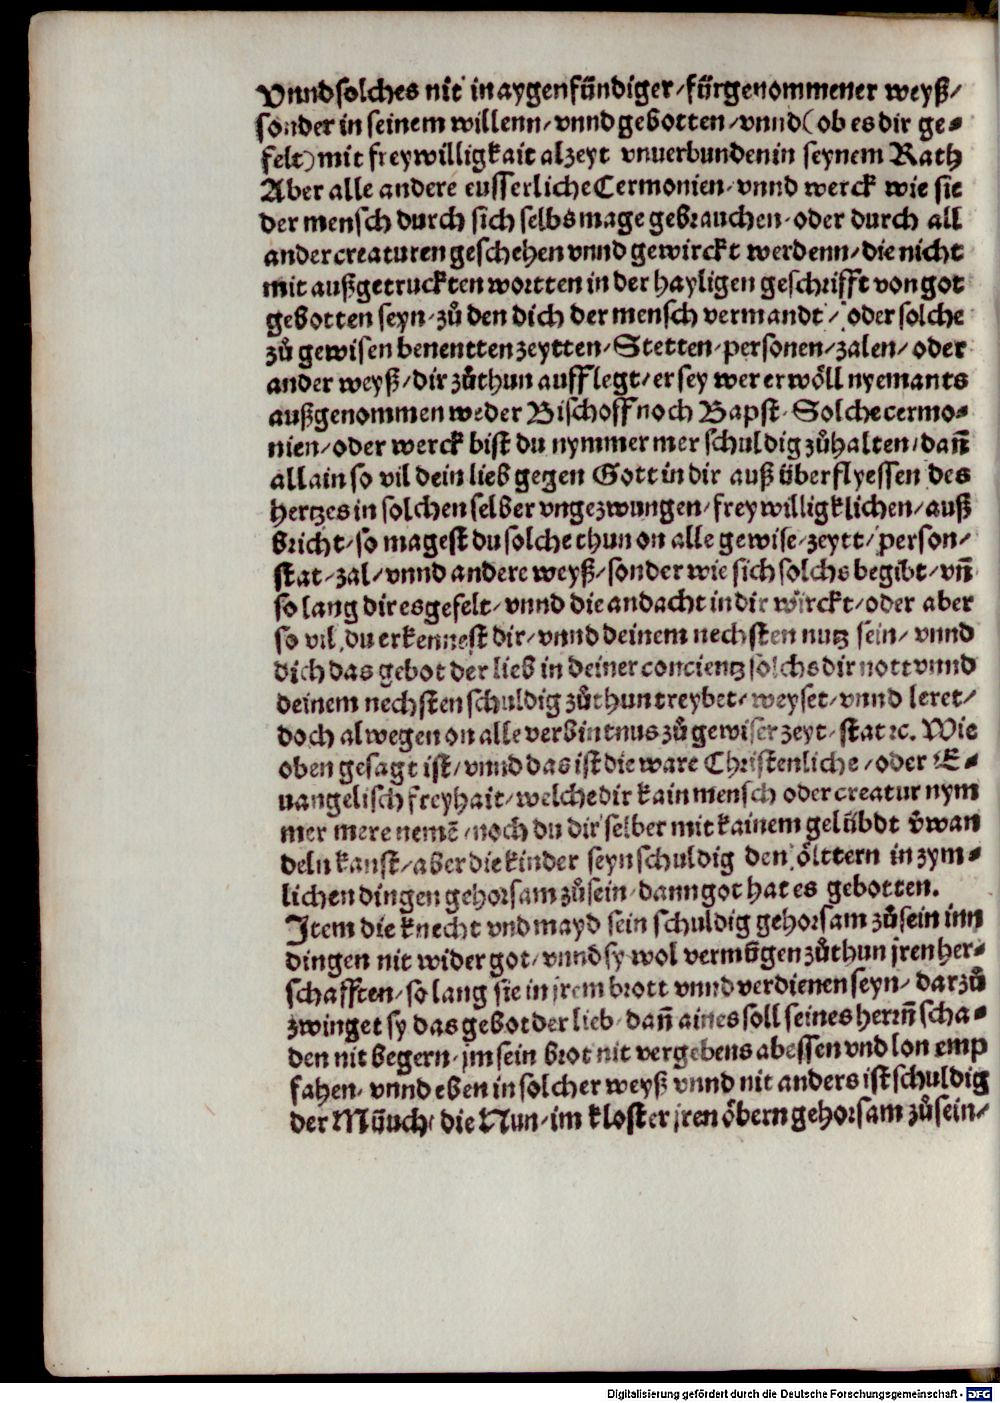 Vnnd solches nit in aygenfündiger/ fürgenommener weyß/
sonder in seinem willenn/ vnnd gebotten/ vnnd (ob es dir ge⸗
felt) mit freywilligkait alzeyt vnuerbunden in seynem Rath
Aber alle andere eusserliche Cermonien/ vnnd werck wie sie
der mensch durch sich selbs mage gebrauchen/ oder durch all
ander creaturen geschehen vnnd gewirckt werdenn/ die nicht
mit außgetruckten wortten in der hayligen geschrifft von got
gebotten seyn/ zů den dich der mensch vermandt/ oder solche
zů gewisen benentten zeytten/ Stetten/ personen/ zalen/ oder
ander weyß/ dir zůthun aufflegt/ er sey wer er wöll nyemants
außgenommen weder Bischoff noch Bapst/ Solche cermo⸗
nien/ oder werck bist du nymmer mer schuldig zůhalten/ dañ
allain so vil dein lieb gegen Gott in dir auß überflyessen des
hertzes in solchen selber vngezwungen/ freywilligklichen/ auß
bricht/ so magest du solche thun on alle gewise/ zeytt/ person/
stat/ zal/ vnnd andere weyß/ sonder wie sich solchs begibt/ vñ
so lang dir es gefelt/ vnnd die andacht in dir würckt/ oder aber
so vil du erkennest dir/ vnnd deinem nechsten nutz sein/ vnnd
dich das gebot der lieb in deiner concientz solchs dir nott vnnd
deinem nechsten schuldig zůthun treybet/ weyset/ vnnd leret/
doch alwegen on alle verbintnus zů gewiser zeyt/ stat ꝛc. Wie
oben gesagt ist/ vnnd das ist die ware Christenliche/ oder E⸗
uangelisch freyhait/ welche dir kain mensch oder creatur nym
mer mere nemē/ noch du dir selber mit kainem gelübdt v̄wan
deln kanst/ aber die kinder seyn schuldig den ölttern in zym⸗
lichen dingen gehorsam zůsein/ dann got hat es gebotten.
Item die knecht vnd mayd sein schuldig gehorsam zůsein inn
dingen nit wider got/ vnnd sy wol vermügen zůthun jren her⸗
schafften/ so lang sie in jrem brott vnnd verdienen seyn/ darzů
zwinget sy das gebot der lieb/ dañ aines soll seines herrñ scha⸗
den nit begern/ jm sein brot nit vergebens abessen vnd lon emp
fahen/ vnnd eben in solcher weyß vnnd nit anders ist schuldig
der Münch/ die Nun/ im kloster jren öbern gehorsam zůsein/
Digitalisierung gefördert durch die Deutsche Forschungsgemeinschaft - DFG